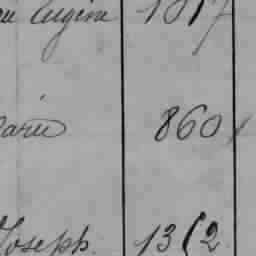 Eugène 1817
Marie 860
Joseph. 1312